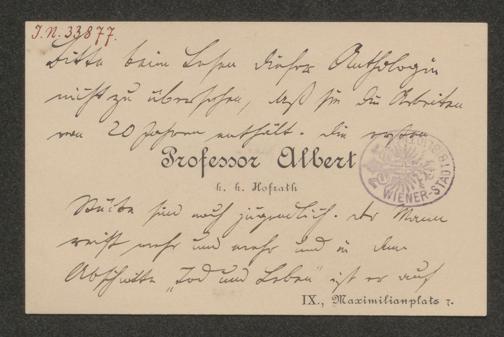 I.N. 33877.
Bitte beim Lesen dieser Anthologie
nicht zu übersehen, daß sie die Arbeiten
von 20 Jahren enthält. Die ersten
Professor Albert
k. k. Hofrath
WIENER-STADT
Stücke sind noch jugendlich. Der Mann
reift mehr und mehr und in dem
Abschnitte „Tod und Leben" ist er auf
IX., Maximilianplatz 7.